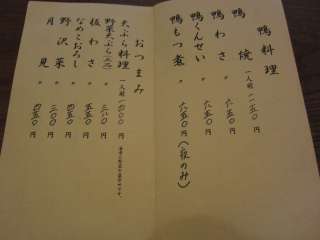 鴨料理
鴨焼 一人前 一一五〇円
鴨わさ 〃 六五〇円
鴨くんせい 〃 六五〇円
鴨もつ煮 〃 六五〇円(夜のみ)
おつまみ
天ぷら料理 一人前 一四〇〇円
野菜天ぷら 〃 三〇〇円
板わさ 〃 五五〇円
なめこおろし 〃 五五〇円
野沢菜 〃 三〇〇円
月見 〃 四五〇円